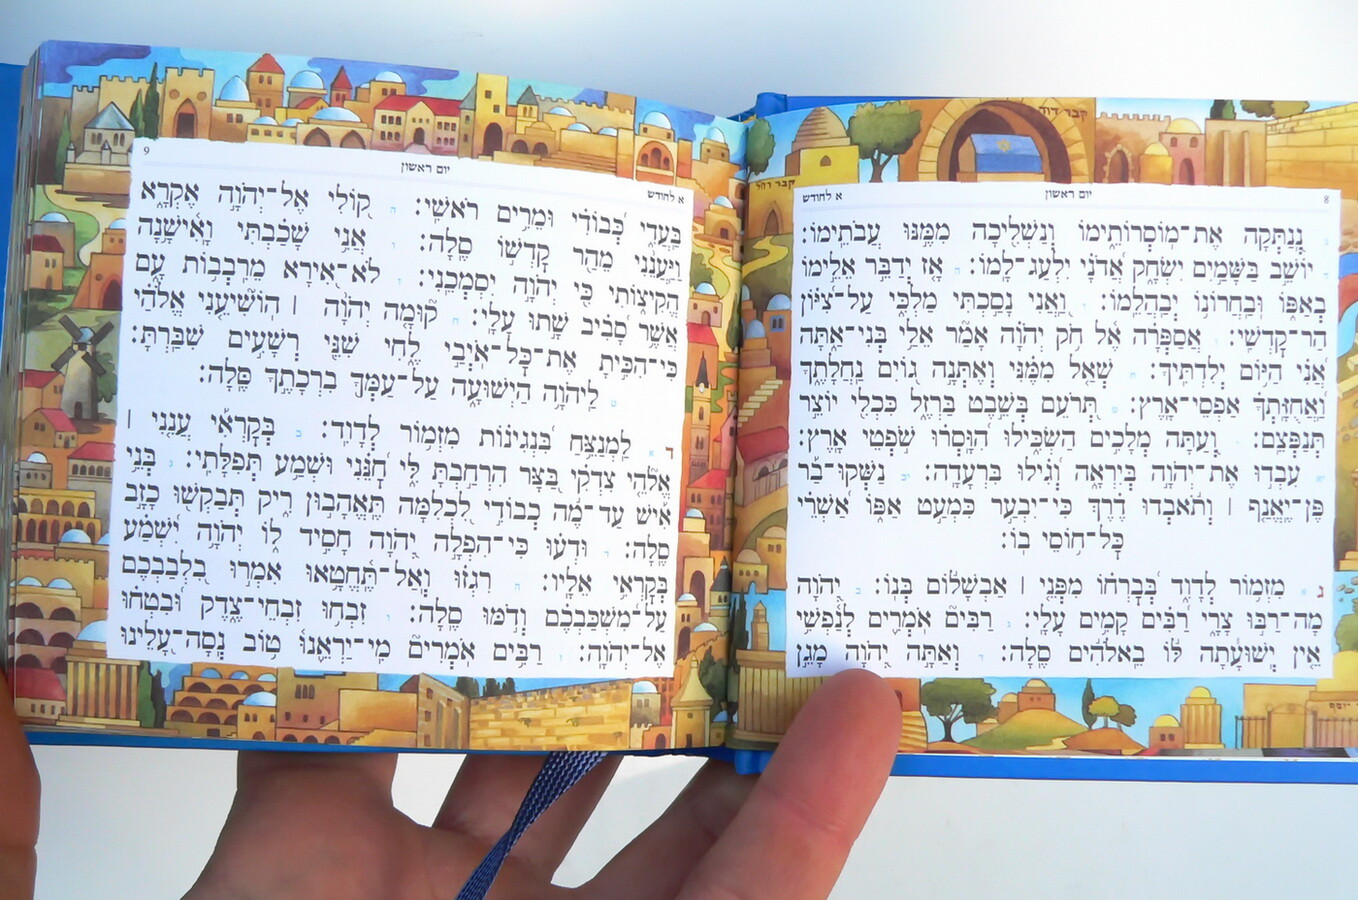 קבר דוד
קבר רחל
8 יום ראשון א לחודש
ג נְֽנַתְּקָה אֶת־מֽוֹסְרוֹתֵימוֹ וְנַשְׁלִיכָה מִמֶּנּוּ עֲבֹתֵֽימוֹ:
ד יוֹשֵׁב בַּשָּׁמַיִם יִשְׂחָק אֲדֹנָי יִלְעַג־לָֽמוֹ: ה אָז יְדַבֵּר אֵלֵימוֹ
בְאַפּוֹ וּֽבַחֲרוֹנוֹ יְבַהֲלֵֽמוֹ: ו וַאֲנִי נָסַכְתִּי מַלְכִּי עַל־צִיּוֹן
הַר־קָדְשִֽׁי: ז אֲסַפְּרָה אֶֽל חֹק יְהֹוָה אָמַר אֵלַי בְּנִי־אַתָּה
אֲנִי הַיּוֹם יְלִדְתִּֽיךָ: ח שְׁאַל מִמֶּנִּי וְאֶתְּנָה גוֹיִם נַחֲלָתֶךָ
וַאֲחֻזָּתְךָ אַפְסֵי־אָֽרֶץ: ט תְּרֹעֵם בְּשֵׁבֶט בַּרְזֶל כִּכְלִי יוֹצֵר
תְּנַפְּצֵֽם: י וְעַתָּה מְלָכִים הַשְׂכִּילוּ הִוָּסְרוּ שֹׁפְטֵי אָֽרֶץ:
יא עִבְדוּ אֶת־יְהֹוָה בְּיִרְאָה וְגִילוּ בִּרְעָדָֽה: יב נַשְּׁקוּ־בַר
פֶּן־יֶאֱנַף | וְתֹאבְדוּ דֶרֶךְ כִּֽי־יִבְעַר כִּמְעַט אַפּוֹ אַשְׁרֵי
כָּל־חוֹסֵי בֽוֹ:
ג א מִזְמוֹר לְדָוִד בְּבָרְחוֹ מִפְּנֵי | אַבְשָׁלוֹם בְּנֽוֹ: ב יְהֹוָה
מָֽה־רַבּוּ צָרָי רַבִּים קָמִים עָלָֽי: ג רַבִּים אֹמְרִים לְנַפְשִׁי
אֵֽין יְֽשׁוּעָתָה לּוֹ בֵאלֹהִים סֶֽלָה: ד וְאַתָּה יְהֹוָה מָגֵן
א לחודש יום ראשון 9
בַּעֲדִי כְּבוֹדִי וּמֵרִים רֹאשִֽׁי: ה קוֹלִי אֶל־יְהֹוָה אֶקְרָא
וַיַּעֲנֵנִי מֵהַר קָדְשׁוֹ סֶֽלָה: ו אֲנִי שָׁכַבְתִּי וָאִישָׁנָה
הֱקִיצוֹתִי כִּי יְהֹוָה יִסְמְכֵֽנִי: ז לֹא־אִירָא מֵרִבְבוֹת עָם
אֲשֶׁר סָבִיב שָׁתוּ עָלָֽי: ח קוּמָה יְהֹוָה | הוֹשִׁיעֵנִי אֱלֹהַי
כִּֽי־הִכִּיתָ אֶת־כָּל־אֹיְבַי לֶחִי שִׁנֵּי רְשָׁעִים שִׁבַּֽרְתָּ:
ט לַיהֹוָה הַיְשׁוּעָה עַל־עַמְּךָ בִרְכָתֶךָ סֶּֽלָה:
ד א לַמְנַצֵּחַ בִּנְגִינוֹת מִזְמוֹר לְדָוִֽד: ב בְּקָרְאִי עֲנֵנִי |
אֱלֹהֵי צִדְקִי בַּצָּר הִרְחַבְתָּ לִּי חָנֵּנִי וּשְׁמַע תְּפִלָּתִֽי: ג בְּנֵי
אִישׁ עַד־מֶה כְבוֹדִי לִכְלִמָּה תֶּאֱהָבוּן רִיק תְּבַקְשׁוּ כָזָב
סֶֽלָה: ד וּדְעוּ כִּֽי־הִפְלָה יְהֹוָה חָסִיד לוֹ יְהֹוָה יִשְׁמַע
בְּקָרְאִי אֵלָֽיו: ה רִגְזוּ וְֽאַל־תֶּחֱטָאוּ אִמְרוּ בִלְבַבְכֶם
עַֽל־מִשְׁכַּבְכֶם וְדֹמּוּ סֶֽלָה: ו זִבְחוּ זִבְחֵי־צֶדֶק וּבִטְחוּ
אֶל־יְהֹוָֽה: ז רַבִּים אֹמְרִים מִֽי־יַרְאֵנוּ טוֹב נְֽסָה־עָלֵינוּ